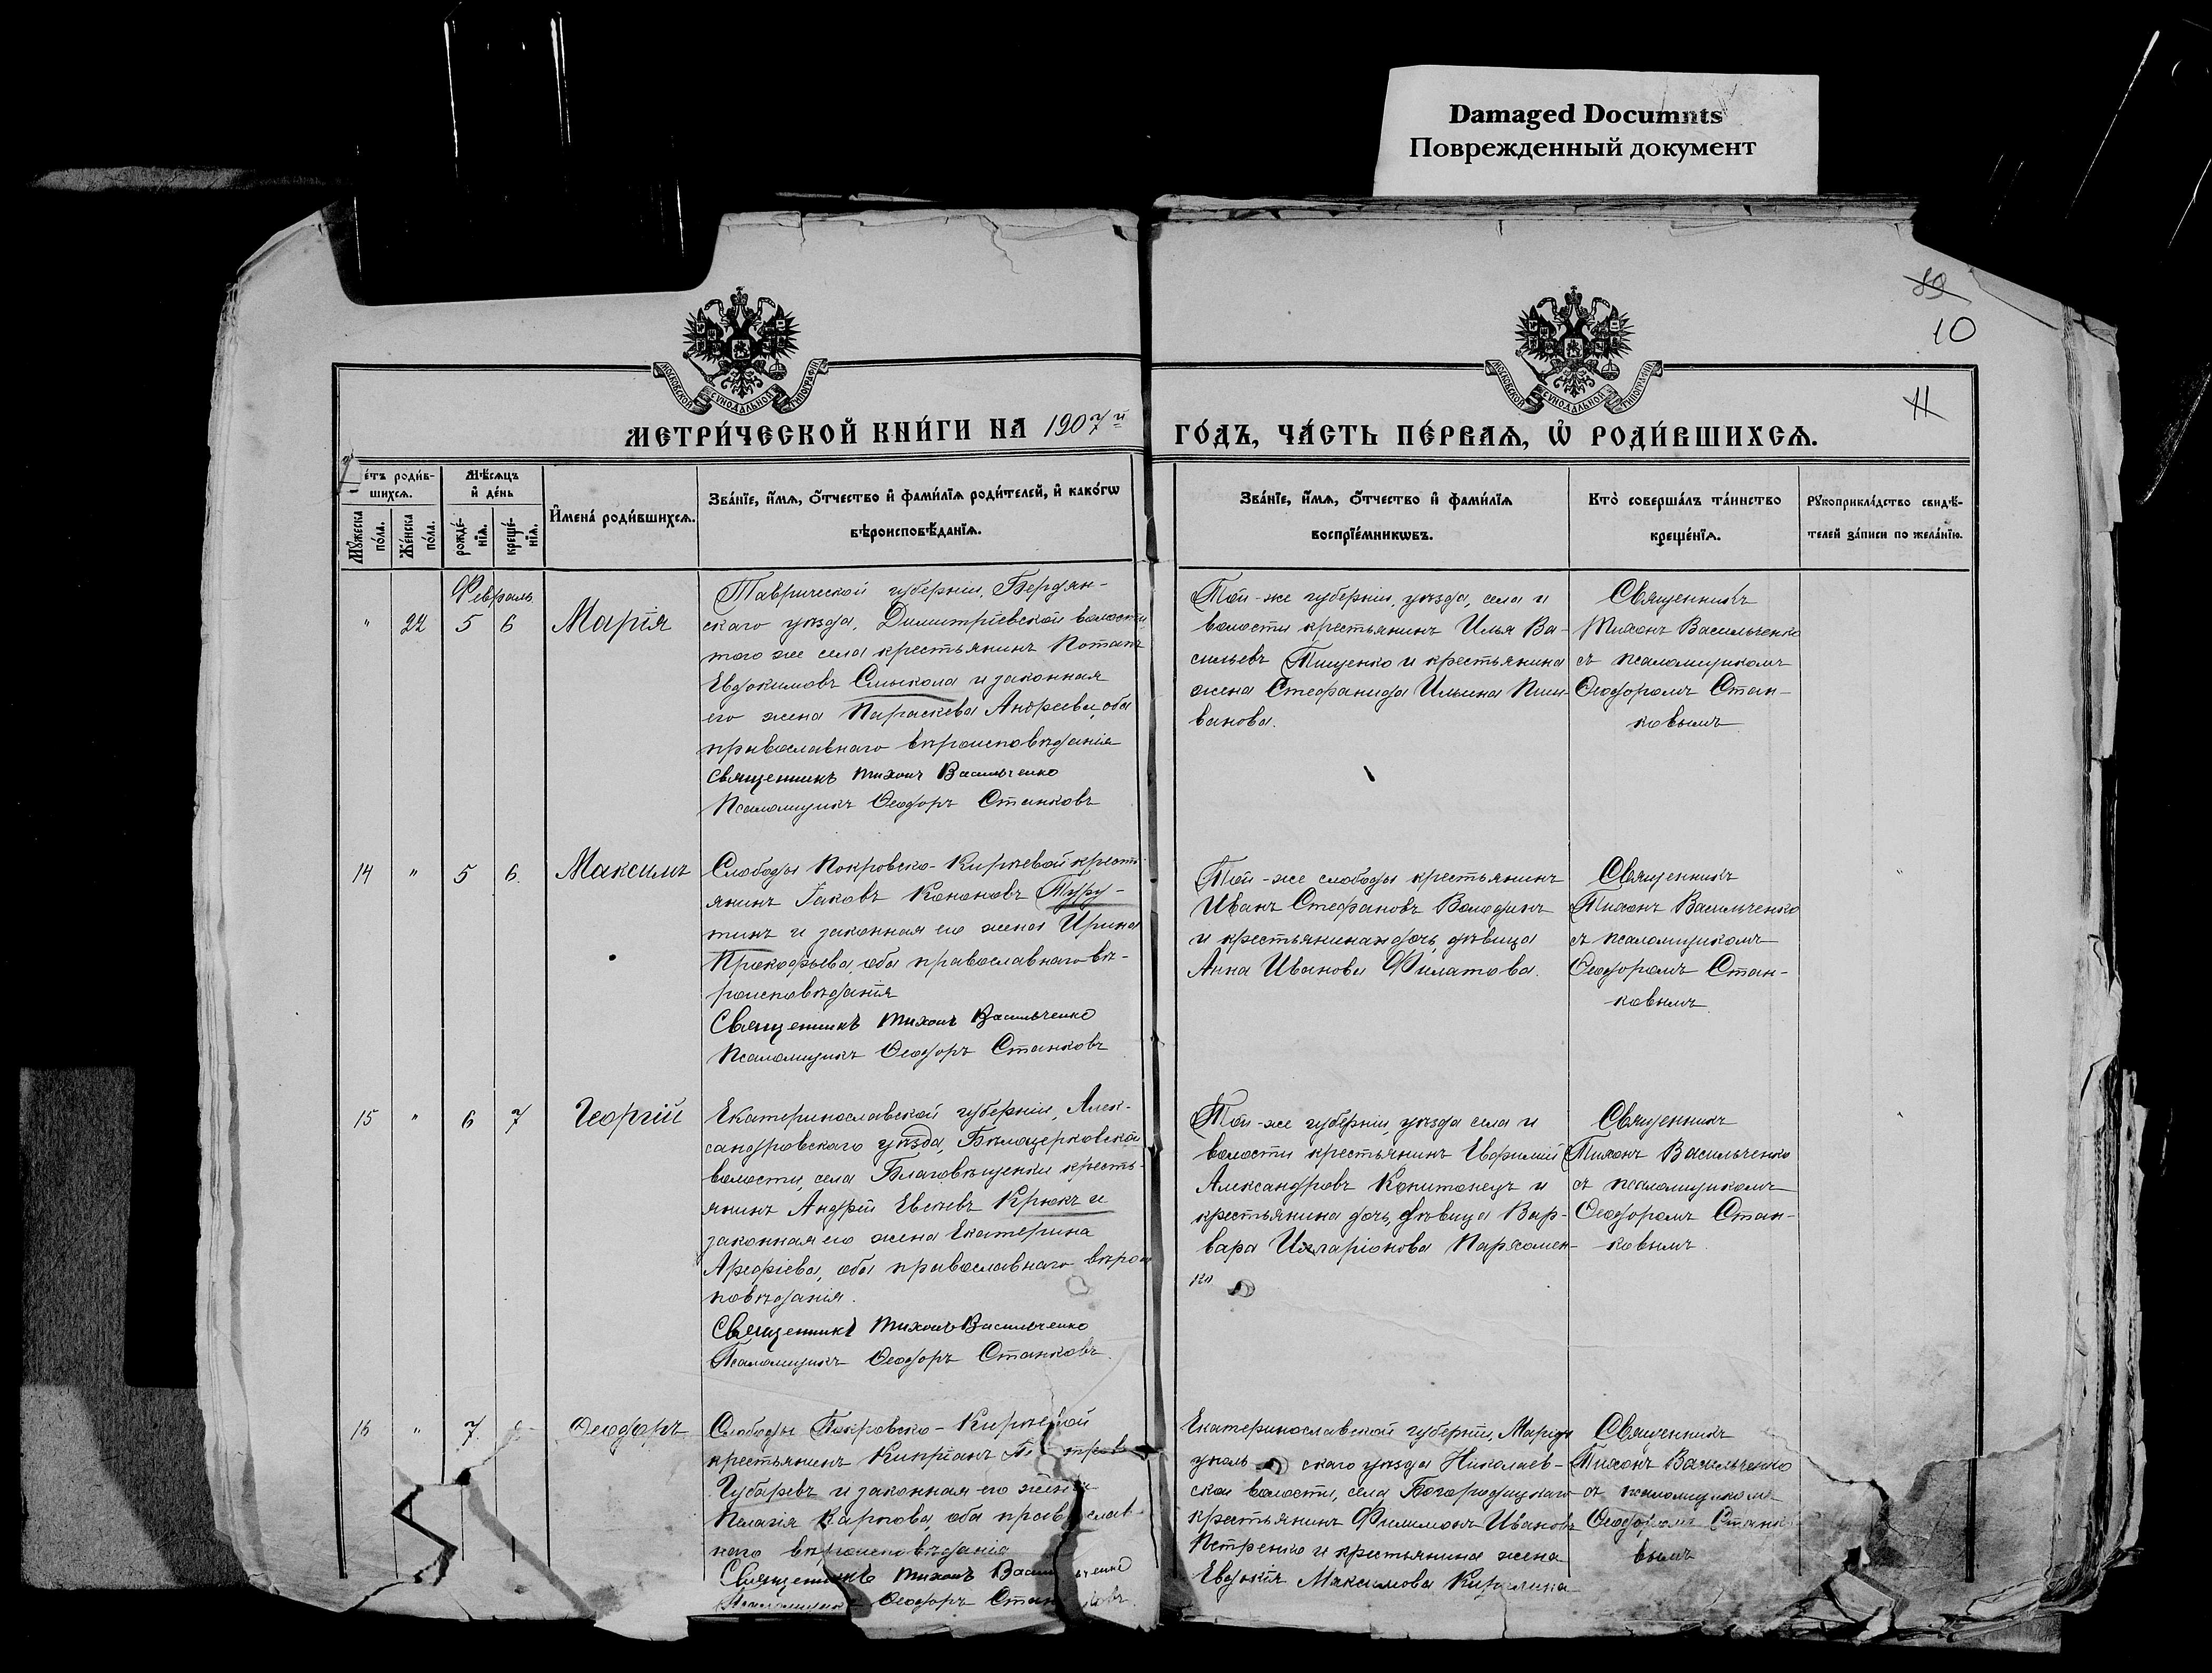 Damaged Documnts
Поврежденный документ
89
10
11
МОСКОВСКОЙ СѴНОДАЛЬНОЙ ТИПОГРАФІИ
МОСКОВСКОЙ СѴНОДАЛЬНОЙ ТИПОГРАФІИ
МЕТРИ́ЧЕСКОЙ КНИ́ГИ НА 1907й
ГО́ДЪ, ЧА́СТЬ ПЕ́РВАѦ, Ѡ҆ РОДИ́ВШИХСѦ.
е́тъ роди́в-
шихсѧ.
Мꙋ́жеска
по́ла.
Же́нска
по́ла.
Мѣ́сѧцъ
и҆ де́нь
рожде́-
нїѧ.
креще́-
нїѧ.
И҆мена̀ роди́вшихсѧ.
Зва́нїе, и҆́мѧ, ѻ҆́тчество и҆ фами́лїѧ роди́телей, и҆ како́гѡ
вѣроисповѣ́данїѧ.
Зва́нїе, и҆́мѧ, ѻ҆́тчество и҆ фами́лїѧ
воспрїе́мникѡвъ.
Кто̀ соверша́лъ та́инство
креще́нїѧ.
Рꙋкоприкла́дство свидѣ́-
телей за́писи по жела́нїю.
Февраль
" 22 5 6 Марія
Таврической губерніи, Бердян-
скаго уѣзда, Димитріевской волости
того же села крестьянинъ Потапъ
Евдокимовъ Смыкола и законная
его жена Параскева Андреева, оба
православнаго вѣроисповѣданія
Священникъ Тихонъ Васильченко
Псаломщикъ Ѳеодоръ Станковъ
Той-же губерніи, уѣзда, села и
волости крестьянинъ Илья Ва-
сильевъ Тищенко и крестьянина
жена Стефанида Ильина Пши-
ванова.
Священникъ
Тихонъ Васильченко
съ псаломщикомъ
Ѳеодоромъ Стан-
ковымъ
14 " 5 6. Максимъ
Слободы Покровско-Кирѣевой кресть-
янинъ Іаковъ Кононовъ Туру-
тинъ и законная его жена Ирина
Прокофьева, оба православнаго вѣ-
роисповѣданія
Священникъ Тихонъ Васильченко
Псаломщикъ Ѳеодоръ Станковъ
Той-же слободы крестьянинъ
Иванъ Стефановъ Володинъ
и крестьянина дочь, дѣвица
Анна Иванова Филатова.
Священникъ
Тихонъ Васильченко
съ псаломщикомъ
Ѳеодоромъ Стан-
ковымъ
15 " 6 7 Георгій
Екатеринославской губерніи, Алек-
сандровскаго уѣзда, Бѣлоцерковской
волости, села Благовѣщенки кресть-
янинъ Андрей Евсѣевъ Крюкъ и
законная его жена Екатерина
Арефіева, оба православнаго вѣрои
повѣданія.
Священникъ Тихонъ Васильченко
Псаломщикъ Ѳеодоръ Станковъ.
Той-же губерніи, уѣзда села и
волости крестьянинъ Евфимій
Александровъ Копитонецъ и
крестьянина дочь, дѣвица Вар-
вара Иларіонова Пархомен-
ко
Священникъ
Тихонъ Васильченко
съ псаломщикомъ
Ѳеодоромъ Стан-
ковымъ.
16 " 7. Ѳеодоръ
Слободы Покровско-Кирѣевой
крестьянинъ Кипріанъ
Губаревъ и законная его жена
Пелагія Карпова, оба православ-
наго вѣроисповѣданія
Священникъ Тихонъ Васильченко
Псаломщикъ Ѳеодоръ Станковъ.
Екатеринославской губерніи, Маріу
поль скаго уѣзда Николаев-
ской волости, села Богородицкаго
крестьянинъ Филимонъ Ивановъ
Петренко и крестьянина жена
Евдокія Максимова
Священникъ
Тихонъ Васильченко
съ псаломщикомъ
Ѳеодоромъ Станко
вымъ